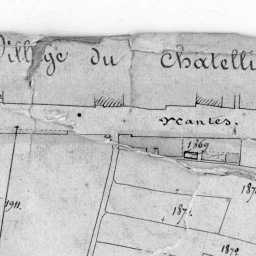 Village du Chatelli
Nantes.
1369
1911.
187
1871.
1872